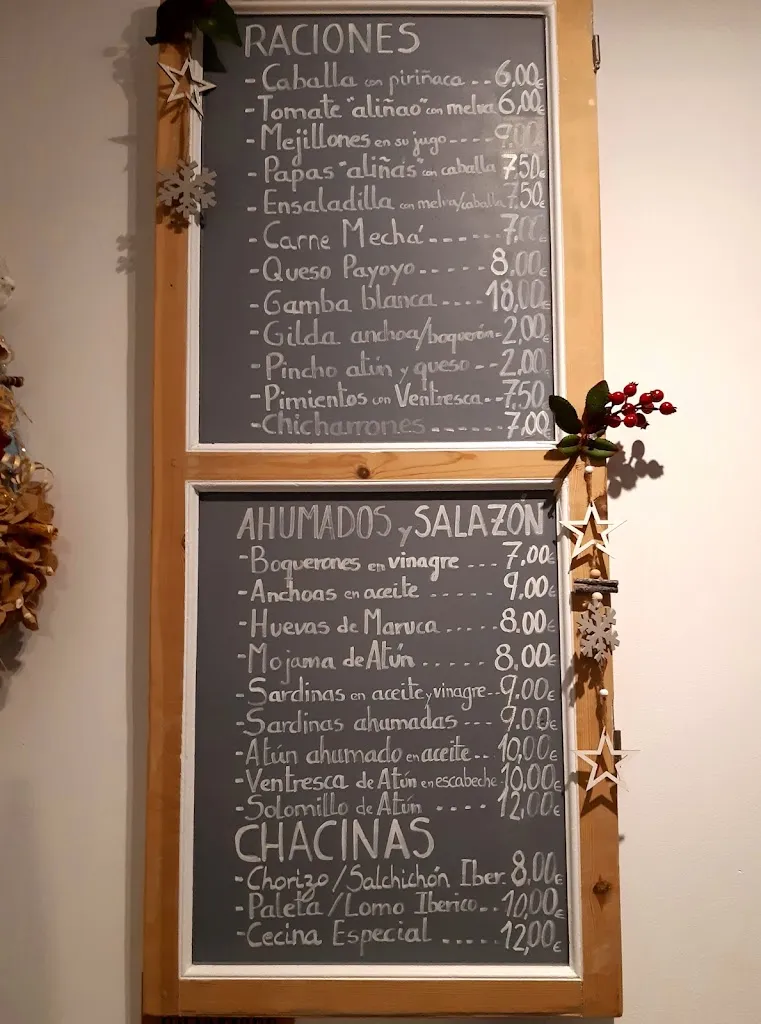 RACIONES
-Caballa con piriñaca .. 6,00€
-Tomate "aliñao" con melva 6,00€
-Mejillones en su jugo ---- 9,00
-Papas "aliñás" con caballa 7,50€
-Ensaladilla con melva/caballa 7,50€
-Carne Mechá ------ 7,00€
-Queso Payoyo ----- 8,00€
-Gamba blanca ---- 18,00€
-Gilda anchoa/boquerón- 2,00€
-Pincho atún y queso -- 2,00€
-Pimientos con Ventresca -- 7,50€
-Chicharrones ------ 7,00€
AHUMADOS y SALAZÓN
-Boquerones en vinagre ... 7,00€
-Anchoas en aceite ..... 9,00€
-Huevas de Maruca ..... 8.00€
-Mojama de Atún ..... 8,00€
-Sardinas en aceite y vinagre -- 9.00€
-Sardinas ahumadas --- 9.00€
-Atún ahumado en aceite .. 10,00€
-Ventresca de Atún en escabeche 10,00€
-Solomillo de Atún ---- 12,00€
CHACINAS
-Chorizo/Salchichón Iber. 8,00€
-Paleta/Lomo Iberico -- 10,00€
-Cecina Especial ..... 12,00€